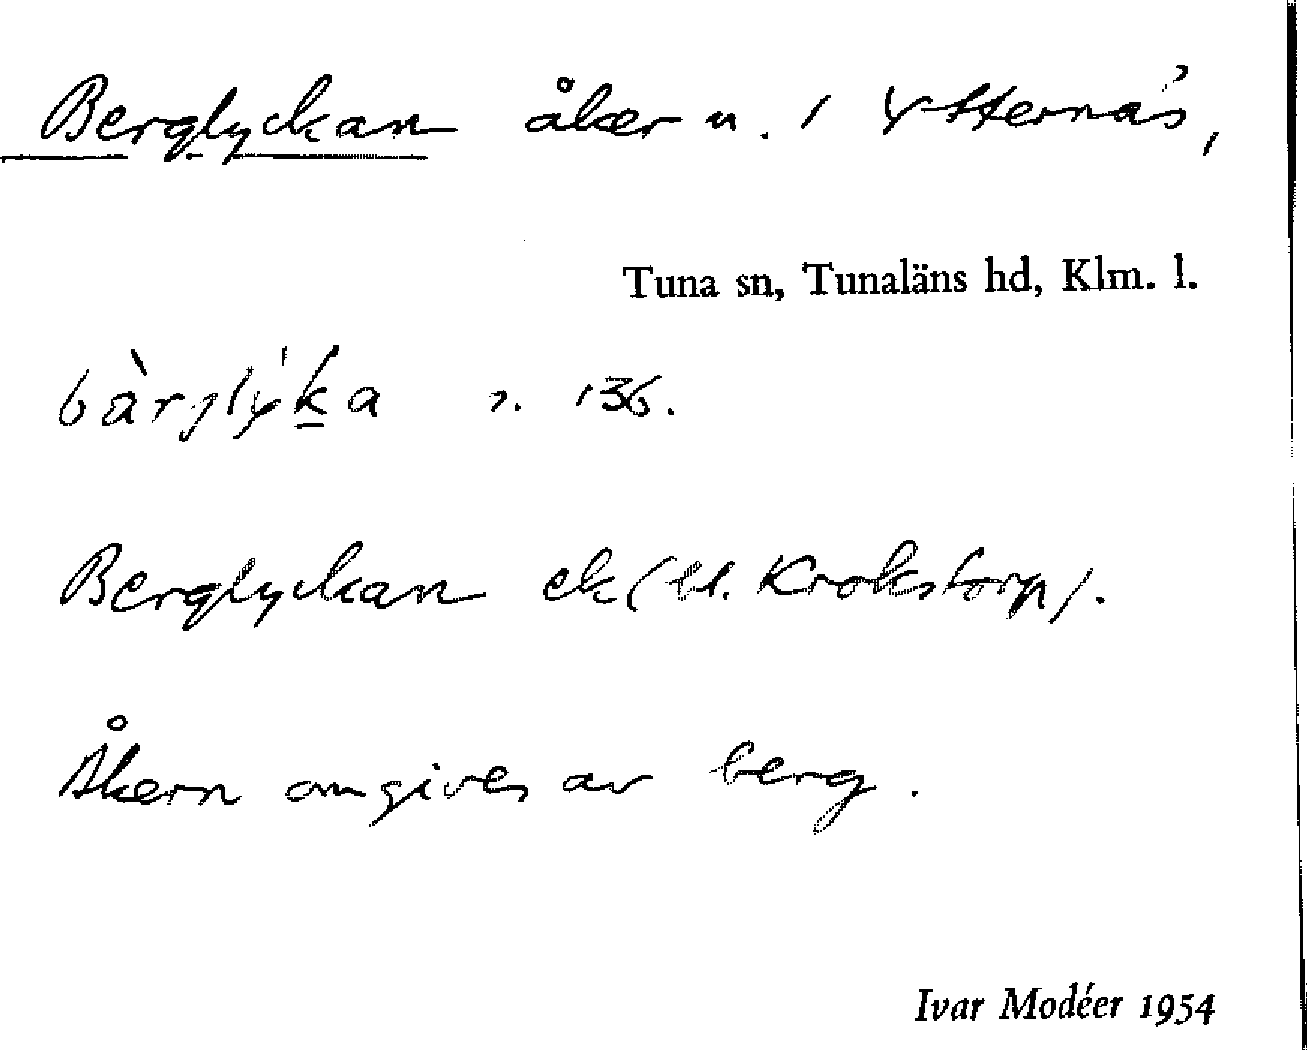 Berglyckan åker u. 1 Ytternäs,
Tuna sn, Tunaläns hd, Klm. l.
bàrglýka 136.
Berglyckan ek (Ll. Krokstorp).
Åkern omgives av berg.
Ivar Modéer 1954